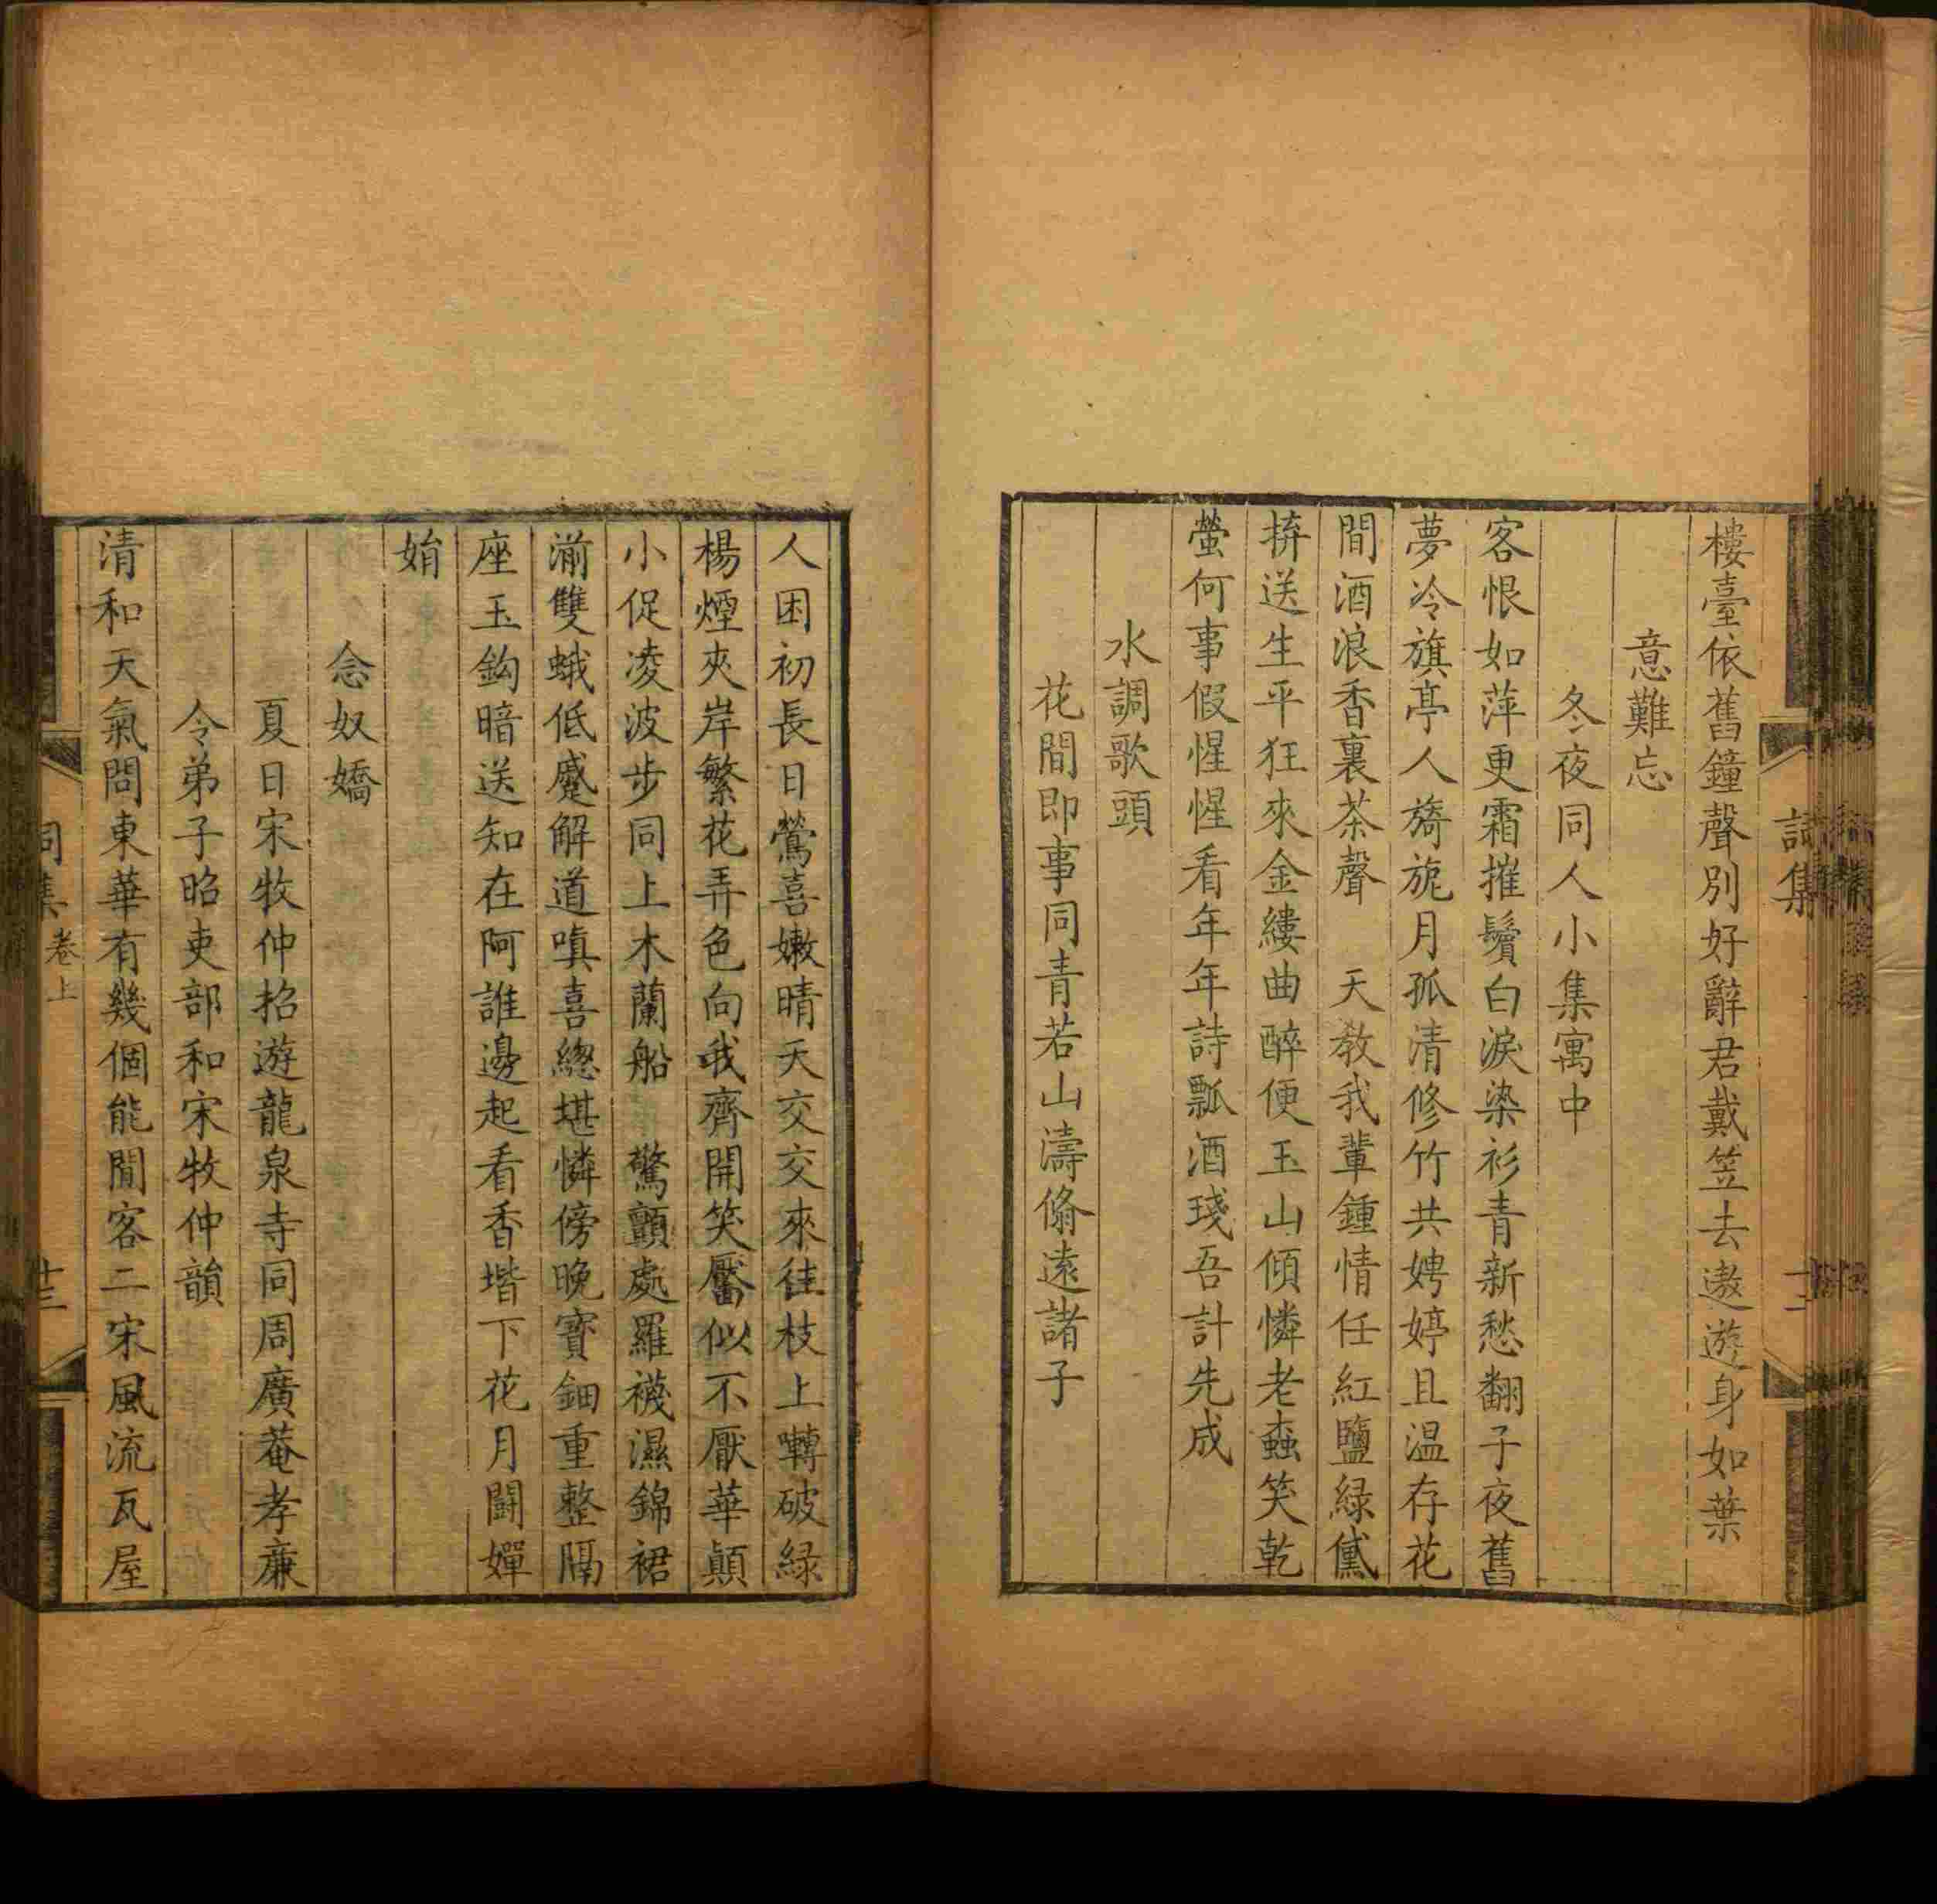 樓臺依舊鐘聲別好辭君戴笠去遨遊身如葉
意難忘
冬夜同人小集寓中
客恨如萍更霜摧鬢白淚染衫青新愁翻子夜舊
夢冷旗亭人旖旎月孤清修竹共娉婷且温存花
間酒浪香裏茶聲　天教我輩鍾情任紅鹽緑黛
拚送生平狂來金縷曲醉便玉山傾憐老蠹笑乾
螢何事假惺惺看年年詩瓢酒琖吾計先成
水調歌頭
花間即事同青若山濤翛遠諸子
人困初長日鶯喜嫩晴天交交來往枝上囀破緑
楊煙夾岸繁花弄色向我齊開笑靨似不厭華顛
小促凌波步同上木蘭船　驚顫處羅襪濕錦裙
湔雙蛾低蹙解道嗔喜總堪憐傍晚寶鈿重整隔
座玉鈎暗送知在阿誰邊起看香堦下花月鬭嬋
娟
念奴嬌
夏日宋牧仲招遊龍泉寺同周廣菴孝廉
令弟子昭吏部和宋牧仲韻
清和天氣問東華有幾個能閒客二宋風流瓦屋
詞集
卷上
十三